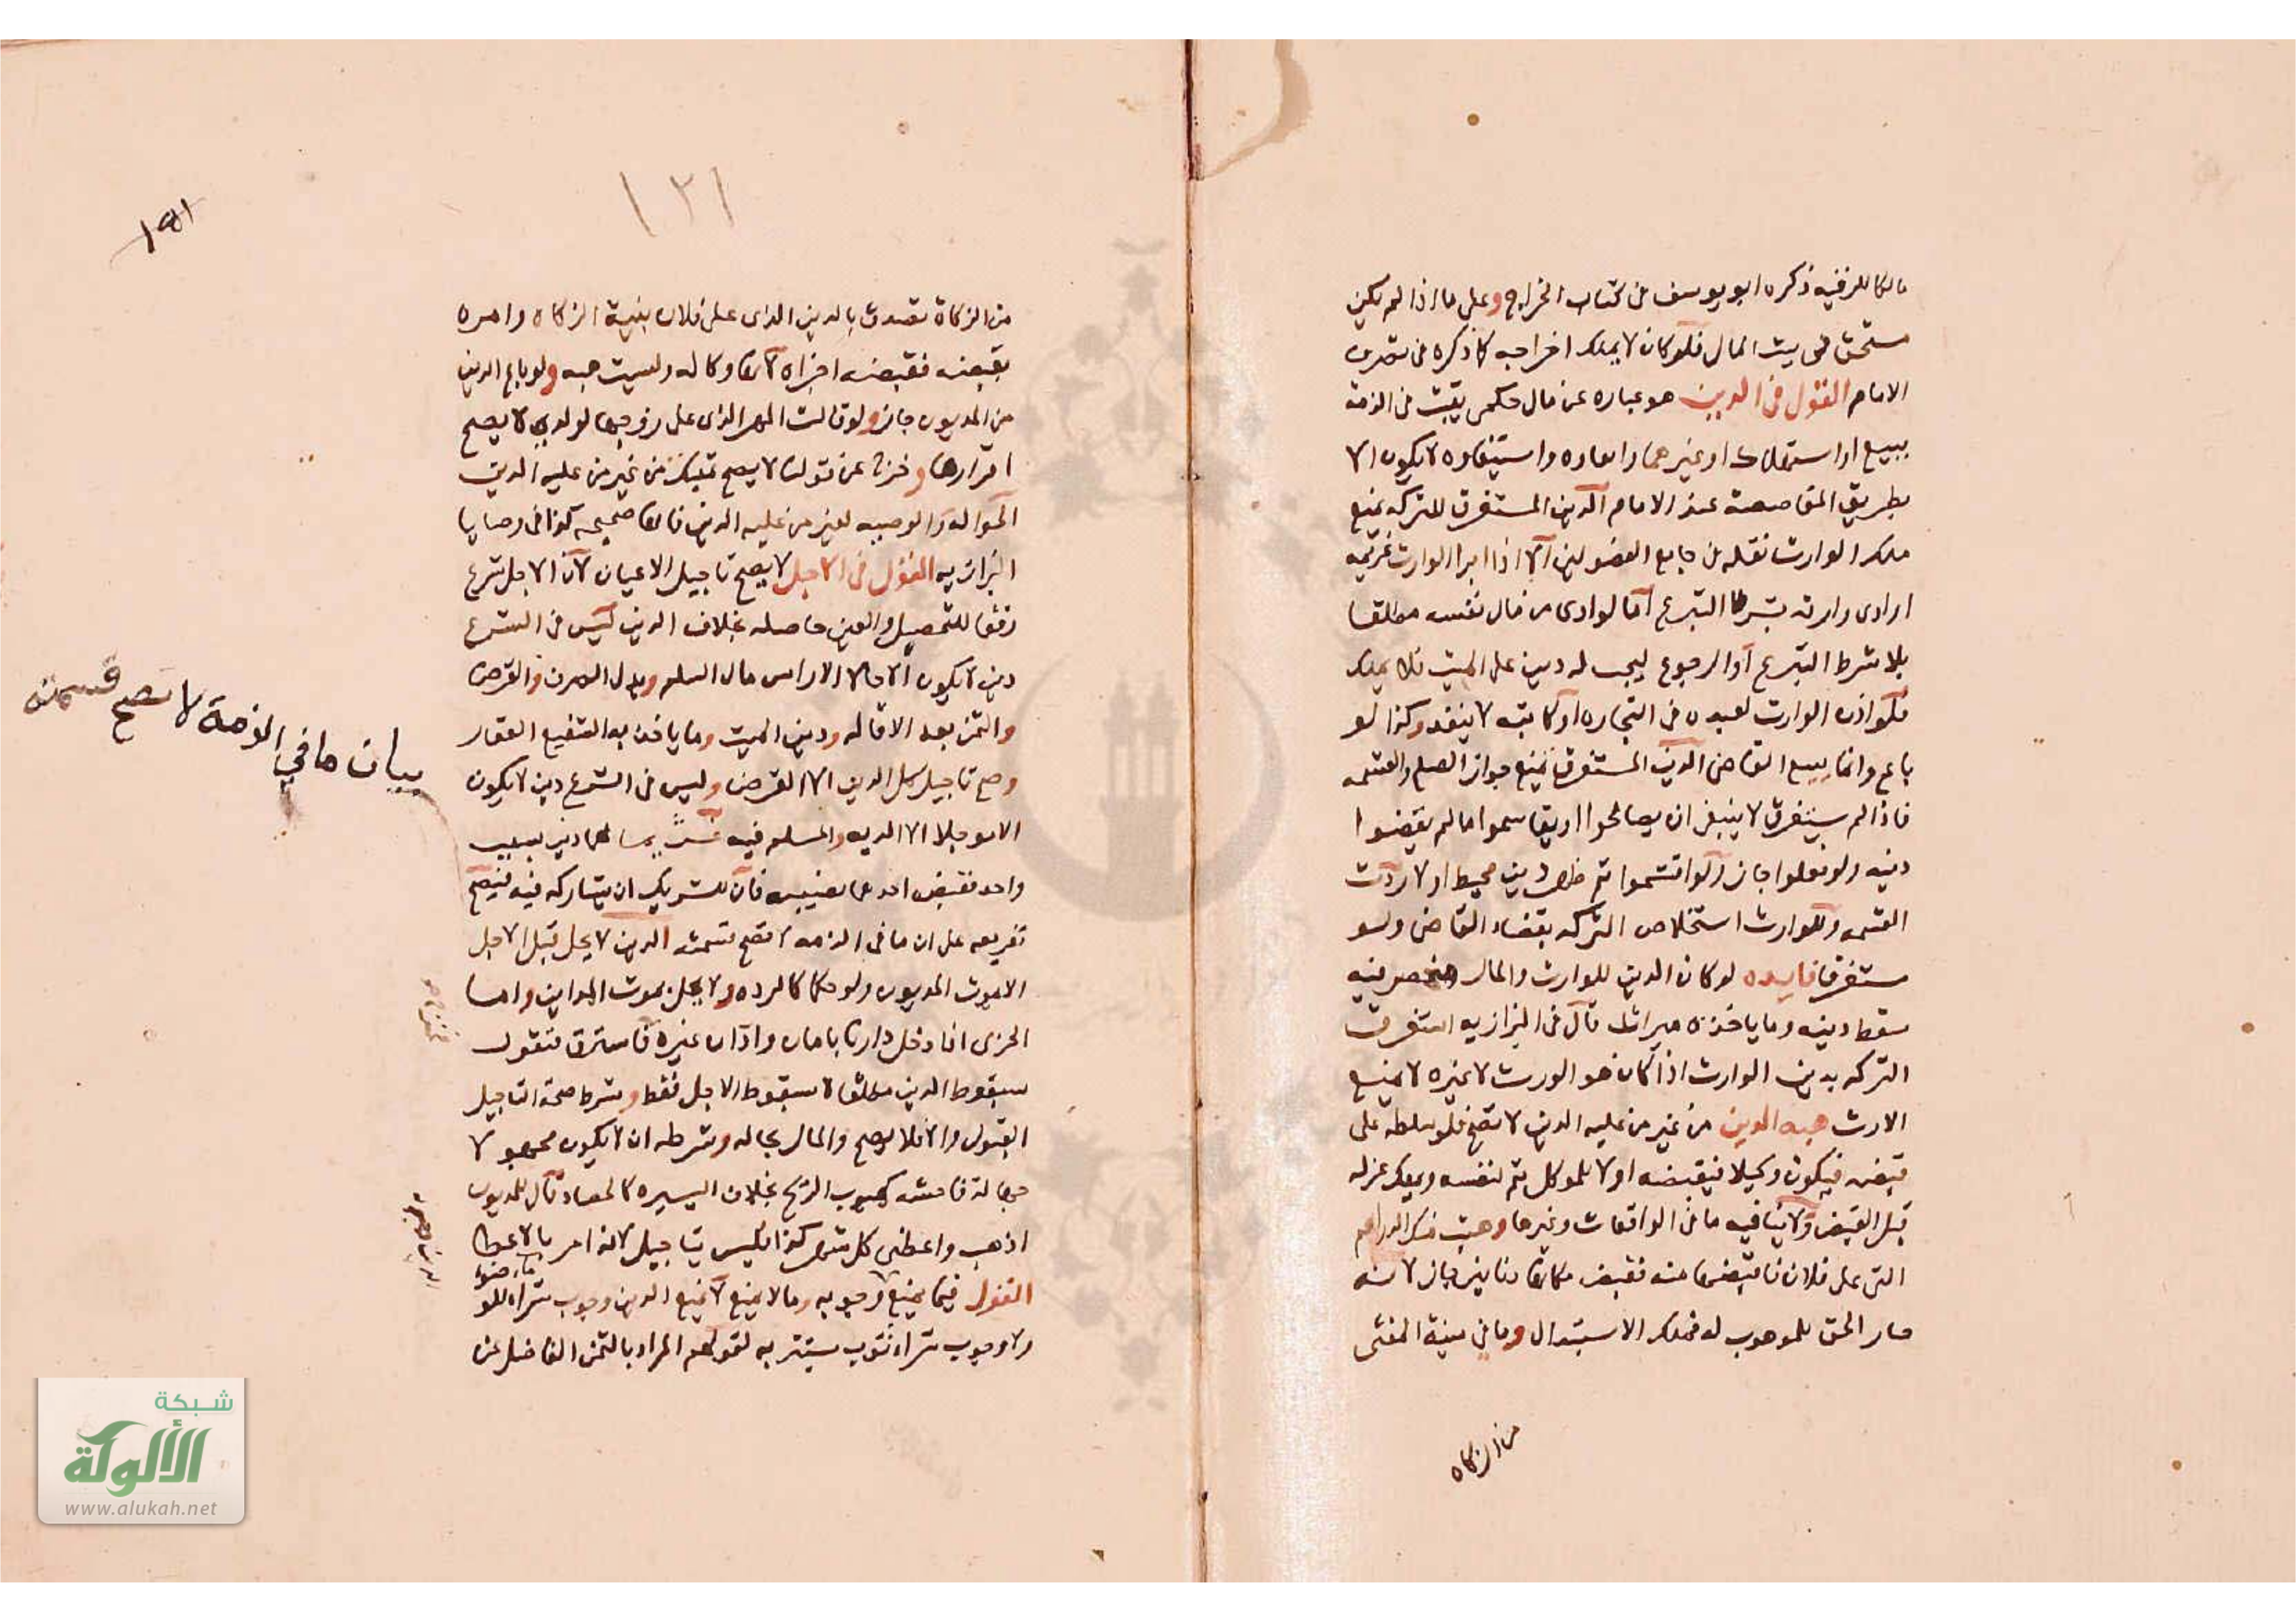 مالكا للرقبة ذكره ابو يوسف فى كتاب الخراج وعلى ما اذا لم يكن
مستحق فى بيت المال فلو كان لا يملك اخراجه كما ذكره فى تصرف
الامام القول فى الدين هو عباره عن مال حكمى يثبت فى الذمة
ببيع او استهلاك او غيرهما وايفاوه واستيفاوه لا يكون الا
بطريق المقاصصة عند الامام الدين المستغرق للتركه يمنع
ملك الوارث نقله فى جامع الفصولين الا اذا ابرا الوارث غريمه
او ادى وارثه بشرط التبرع اما لو ادى من مال نفسه مطلقا
بلا شرط التبرع او الرجوع يجب له دين على الميت فلا يملك
فلو اذن الوارث لعبده فى التجاره او كاتبه لا ينفذ وكذا لو
باع وانما يبيع القاضى الدين المستغرق يمنع جواز الصلح والقسمه
فاذا لم يستغرق لا ينبغى ان يصالحوا او يقاسموا ما لم يقضوا
دينه ولو فعلوا جاز ولو اقتسموا ثم ظهر دين محيط او لا ردت
القسمه وللوارث استخلاص التركه بقضاء القاضى ولو
مستغرقا فايده لو كان الدين للوارث والمال منحصر فيه
سقط دينه وما ياخذه ميراثا قال فى البزازيه استغرقت
التركه بدين الوارث اذا كان هو الورث لا غيره لا يمنع
الارث هبه الدين من غير من عليه الدين لا تصح فلو سلطه على
قبضه فيكون وكيلا فيقبضه اولا للموكل ثم لنفسه ويملك عزله
قبل القبض ولا ينافيه ما فى الواقعات وغيرها وهبت منك الدراهم
التى على فلان فاقبضها منه فقبض مكانها دنانير جاز لانه
صار الحق للموهوب له فملك الاستبدال وما فى منية المفتى
من الزكاه
١٢١
١٩١
من الزكاة تصدق بالدين الذى على فلان بنية الزكاه وامره
بقبضه فقبضه اجزاه لانها وكاله وليست هبه ولو باع الدين
من المديون جاز ولو قالت المهر الذى على زوجها لولدى لا يصح
اقرارها وخرج عن قولنا لا يصح تمليك من غير من عليه الدين
الحواله والوصيه لغير من عليه الدين فانها صحيحه كذا فى وصايا
البزازيه القول فى الاجل لا يصح تاجيل الاعيان لان الاجل شرع
رفقا للتحصيل والعين حاصله بخلاف الدين ليس فى الشرع
دين لا يكون الا حالا الا راس مال السلم وبدل الصرف والقرض
والثمن بعد الاقاله ودين الميت وما ياخذ به الشفيع العقار
وصح تاجيل كل الدين الا القرض وليس فى الشرع دين لا يكون
الا موجلا الا الديه والمسلم فيه لهما دين بسبب
واحد فقبض احدهما نصيبه فان للشريك ان يشاركه فيه فيصح
تفريعه على ان ما فى الذمه لا تصح قسمته الدين لا يحل قبل الاجل
الا بموت المديون ولو حكما كالرده ولا يحل بموت الداين واما
الحربى اذا دخل دارنا بامان وادان غيره فاسترق فنقول
سقوط الدين مطلقا لا سقوط الاجل فقط وشرط صحة التاجيل
القبول والا فلا يصح والمال بحاله وشرطه ان لا يكون مجهولا
جهالة فاحشه كهبوب الريح بخلاف اليسيره كالحصاد قال للمديون
اذهب واعطنى كل شهر كذا فليس بتاجيل لانه امر بالاعطا
القول فيما يمنع وجوبه وما لا يمنع لا يمنع الدين وجوب شراه للو
ماء ضوء
ولا وجوب شراء ثوب يستتر به لقولهم المراد بالثمن الفاضل عن
بيان ما في الذمة لا تصح قسمته
شبكة
الألوكة
www.alukah.net